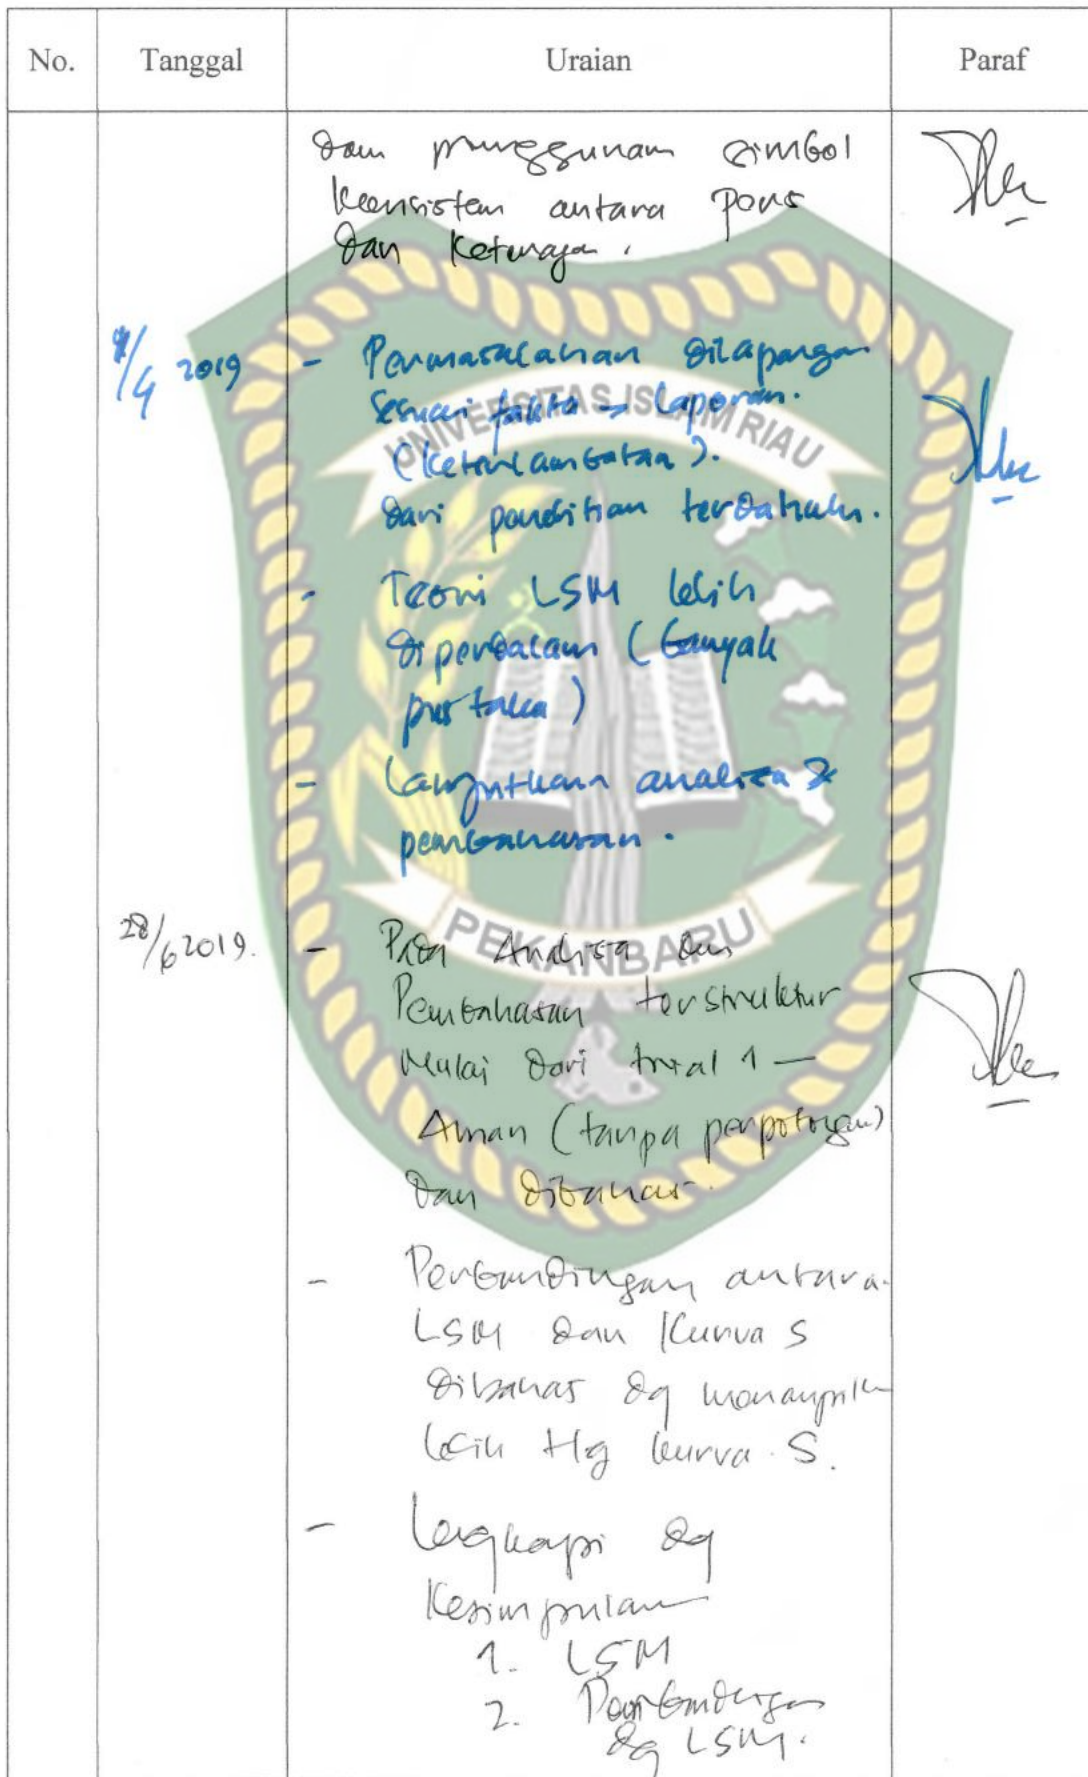 No. Tanggal Uraian Paraf
dan penggunaan simbol
konsisten antara
dan Keterangan.
/4 2019 - Permasalahan dilapangan
sesuai fakta → laporan.
(keterlambatan).
dari penelitian terdahulu.
- Teori LSM lebih
diperdalam (banyak
pustaka)
- Lanjutkan analisa &
pembahasan.
UNIVERSITAS ISLAM RIAU
PEKANBARU
28/6 2019. - Pada Analisa dan
Pembahasan terstruktur
Mulai dari trial 1 —
Aman (tanpa perpotongan)
dan dibahas.
- Perbandingan antara
LSM dan Kurva S
dibahas dg
lebih ttg kurva S.
- Lengkapi dg
Kesimpulan
1. LSM
2. Perbandingan
dg LSM.